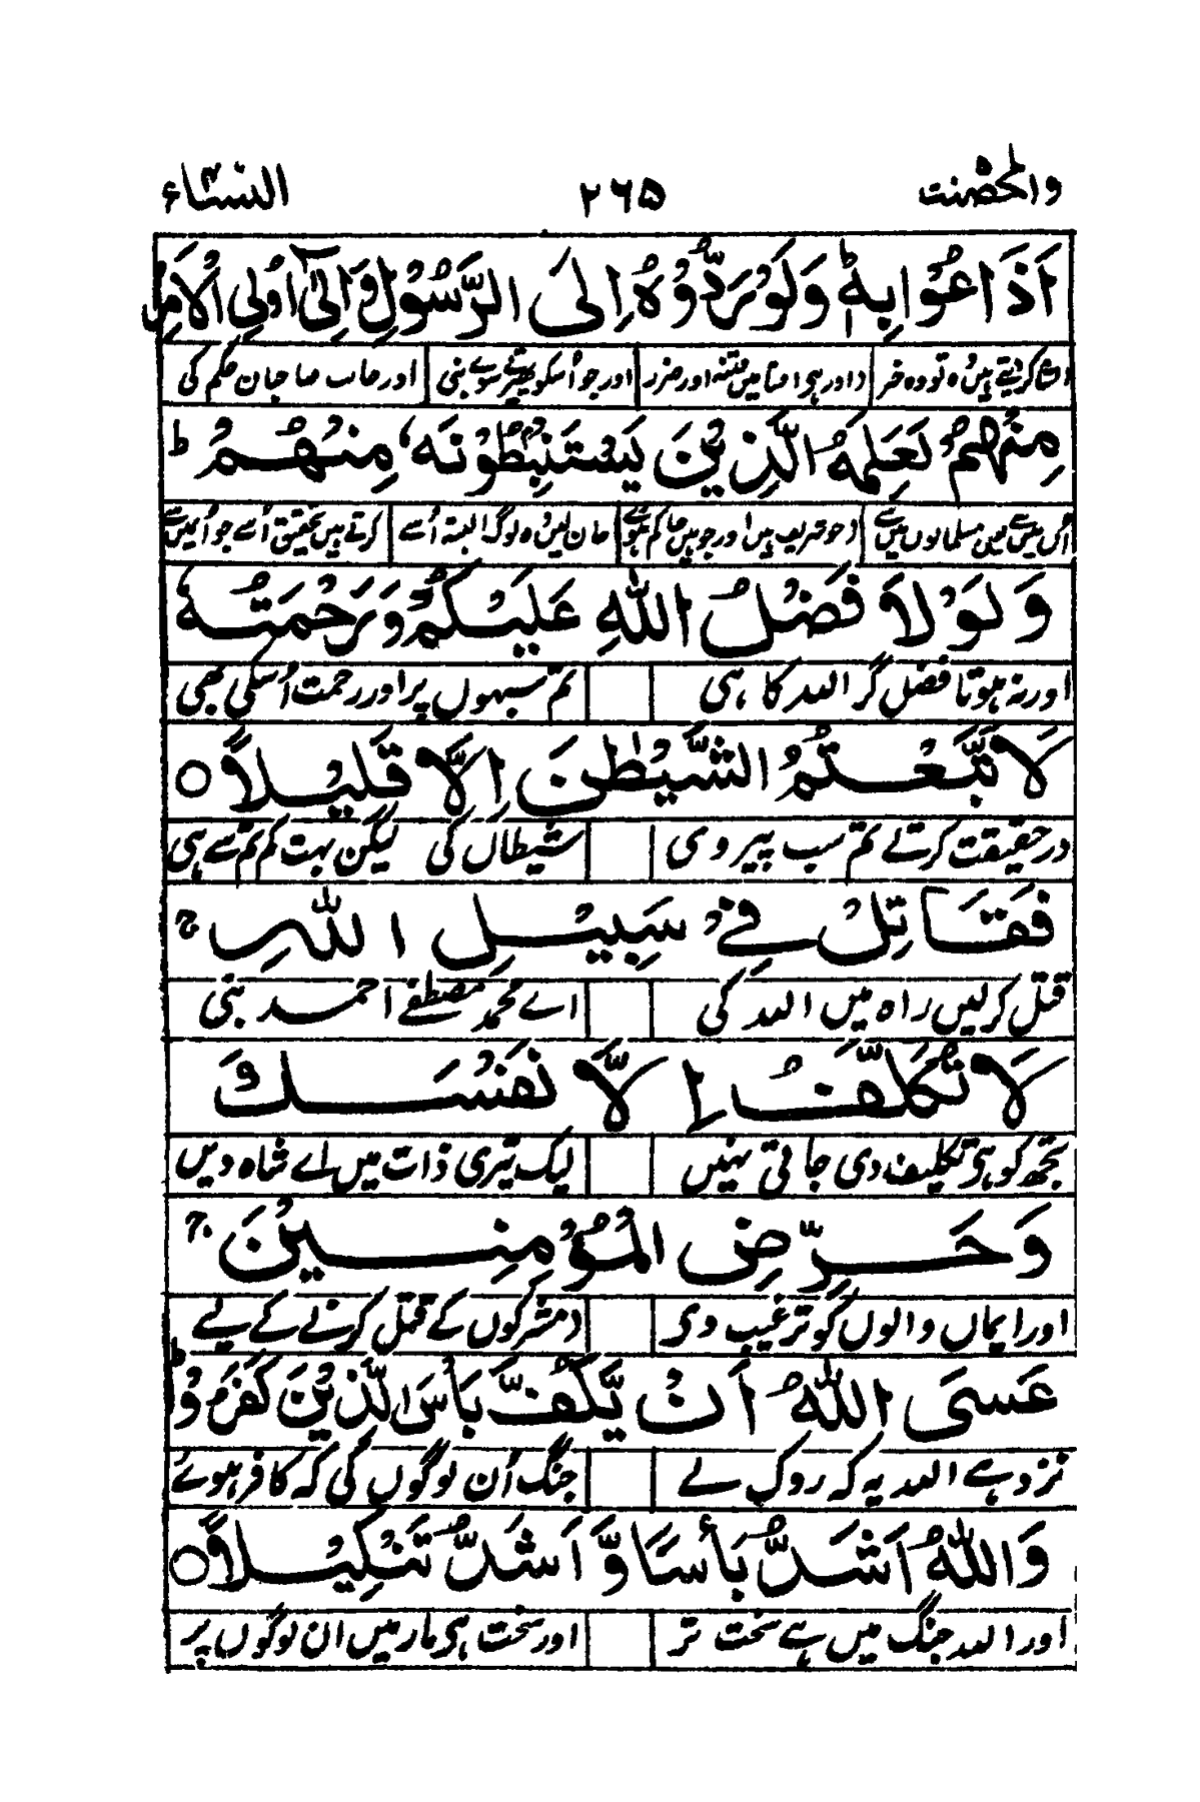 والمحصنت ۲۶۵ النساء۴
اَذَاعُوْا بِهٖ ؕ وَلَوْ رَدُّوْهُ اِلَى الرَّسُوْلِ وَاِلٰۤى اُولِى الْاَمْرِ
کردیتے ہیں وہ تو وہ خبر اور جو اُسکو پھیرتے سوے نبی اور جانب صاحبان حکم کی
مِنْهُمْ لَعَلِمَهُ الَّذِيْنَ يَسْتَنْبِطُوْنَهٗ مِنْهُمْ ؕ
مسلمانوں میں سے جان لیں وہ لوگ البتہ اُسے کرتے ہیں تحقیق اُسے جو اُنمیں سے
وَلَوْلَا فَضْلُ اللّٰهِ عَلَيْكُمْ وَرَحْمَتُهٗ
اور نہ ہوتا فضل گر اللہ کا ہی تم سبھوں پر اور رحمت اُسکی بھی
لَاتَّبَعْتُمُ الشَّيْطٰنَ اِلَّا قَلِيْلًا ○
درحقیقت کرتے تم سب پیروی شیطاں کی لیکن بہت کم تم سے ہی
فَقَاتِلْ فِيْ سَبِيْلِ اللّٰهِ ۚ
قتل کرلیں راہ میں اللہ کی اے محمد مصطفےٰ احمد نبی
لَا تُكَلَّفُ اِلَّا نَفْسَكَ وَ
تجھ کو ہی تکلیف دی جاتی نہیں لیک تیری ذات میں اے شاہ دیں
وَحَرِّضِ الْمُؤْمِنِيْنَ ۚ
اور ایماں والوں کو ترغیب دی مشرکوں کے قتل کرنے کے لیے
عَسَى اللّٰهُ اَنْ يَّكُفَّ بَاْسَ الَّذِيْنَ كَفَرُوْا ؕ
نزد ہے اللہ یہ کہ روک لے جنگ اُن لوگوں کی کہ کافر ہوے
وَاللّٰهُ اَشَدُّ بَاْسًا وَّ اَشَدُّ تَنْكِيْلًا ○
اور اللہ جنگ میں ہے سخت تر اور سخت ہی مار میں ان لوگوں پر